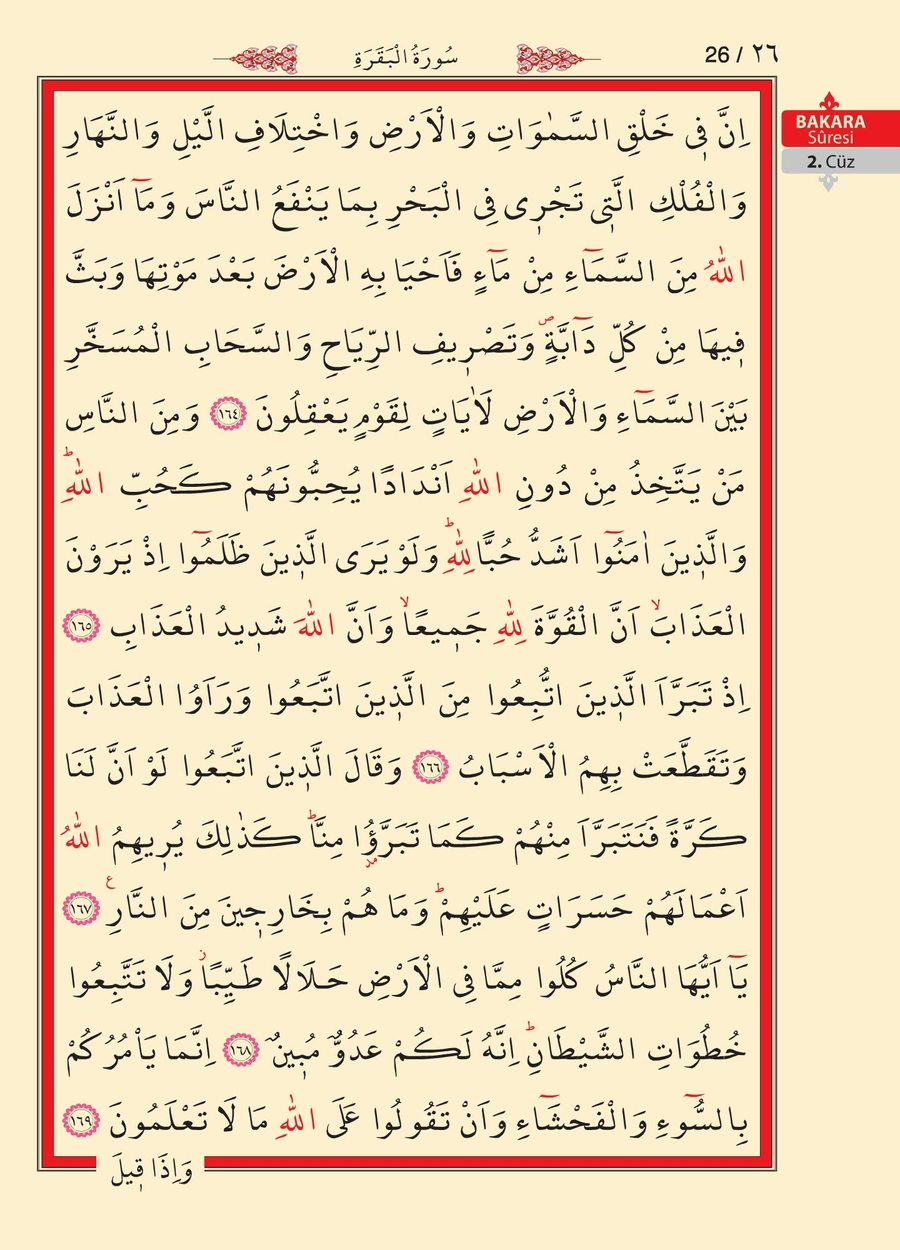 26 / ٢٦
سُورَةُ الْبَقَرَةِ
BAKARA
Sûresi
2. Cüz
اِنَّ فٖى خَلْقِ السَّمٰوَاتِ وَالْاَرْضِ وَاخْتِلَافِ الَّيْلِ وَالنَّهَارِ
وَالْفُلْكِ الَّتٖى تَجْرٖى فِى الْبَحْرِ بِمَا يَنْفَعُ النَّاسَ وَمَٓا اَنْزَلَ
اللّٰهُ مِنَ السَّمَٓاءِ مِنْ مَٓاءٍ فَاَحْيَا بِهِ الْاَرْضَ بَعْدَ مَوْتِهَا وَبَثَّ
فٖيهَا مِنْ كُلِّ دَٓابَّةٍۖ وَتَصْرٖيفِ الرِّيَاحِ وَالسَّحَابِ الْمُسَخَّرِ
بَيْنَ السَّمَٓاءِ وَالْاَرْضِ لَاٰيَاتٍ لِقَوْمٍ يَعْقِلُونَ ﴿١٦٤﴾ وَمِنَ النَّاسِ
مَنْ يَتَّخِذُ مِنْ دُونِ اللّٰهِ اَنْدَادًا يُحِبُّونَهُمْ كَحُبِّ اللّٰهِؕ
وَالَّذٖينَ اٰمَنُٓوا اَشَدُّ حُبًّا لِلّٰهِؕ وَلَوْ يَرَى الَّذٖينَ ظَلَمُٓوا اِذْ يَرَوْنَ
الْعَذَابَۙ اَنَّ الْقُوَّةَ لِلّٰهِ جَمٖيعًاۙ وَاَنَّ اللّٰهَ شَدٖيدُ الْعَذَابِ ﴿١٦٥﴾
اِذْ تَبَرَّاَ الَّذٖينَ اتُّبِعُوا مِنَ الَّذٖينَ اتَّبَعُوا وَرَاَوُا الْعَذَابَ
وَتَقَطَّعَتْ بِهِمُ الْاَسْبَابُ ﴿١٦٦﴾ وَقَالَ الَّذٖينَ اتَّبَعُوا لَوْ اَنَّ لَنَا
كَرَّةً فَنَتَبَرَّاَ مِنْهُمْ كَمَا تَبَرَّؤُ۫ا مِنَّاؕ كَذٰلِكَ يُرٖيهِمُ اللّٰهُ
اَعْمَالَهُمْ حَسَرَاتٍ عَلَيْهِمْؕ وَمَا هُمْ بِخَارِجٖينَ مِنَ النَّارِࣖ ﴿١٦٧﴾
يَٓا اَيُّهَا النَّاسُ كُلُوا مِمَّا فِى الْاَرْضِ حَلَالًا طَيِّبًاؗ وَلَا تَتَّبِعُوا
خُطُوَاتِ الشَّيْطَانِؕ اِنَّهُ لَكُمْ عَدُوٌّ مُبٖينٌ ﴿١٦٨﴾ اِنَّمَا يَاْمُرُكُمْ
بِالسُّٓوءِ وَالْفَحْشَٓاءِ وَاَنْ تَقُولُوا عَلَى اللّٰهِ مَا لَا تَعْلَمُونَ ﴿١٦٩﴾
وَاِذَا قٖيلَ